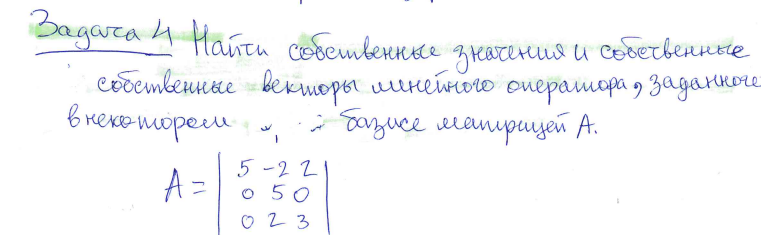 Задача 4 Найти собственные значения и собственные
собственные векторы линейного оператора, заданного
в некотором базисе матрицей А.
A = | 5 -2 2 |
| 0 5 0 |
| 0 2 3 |